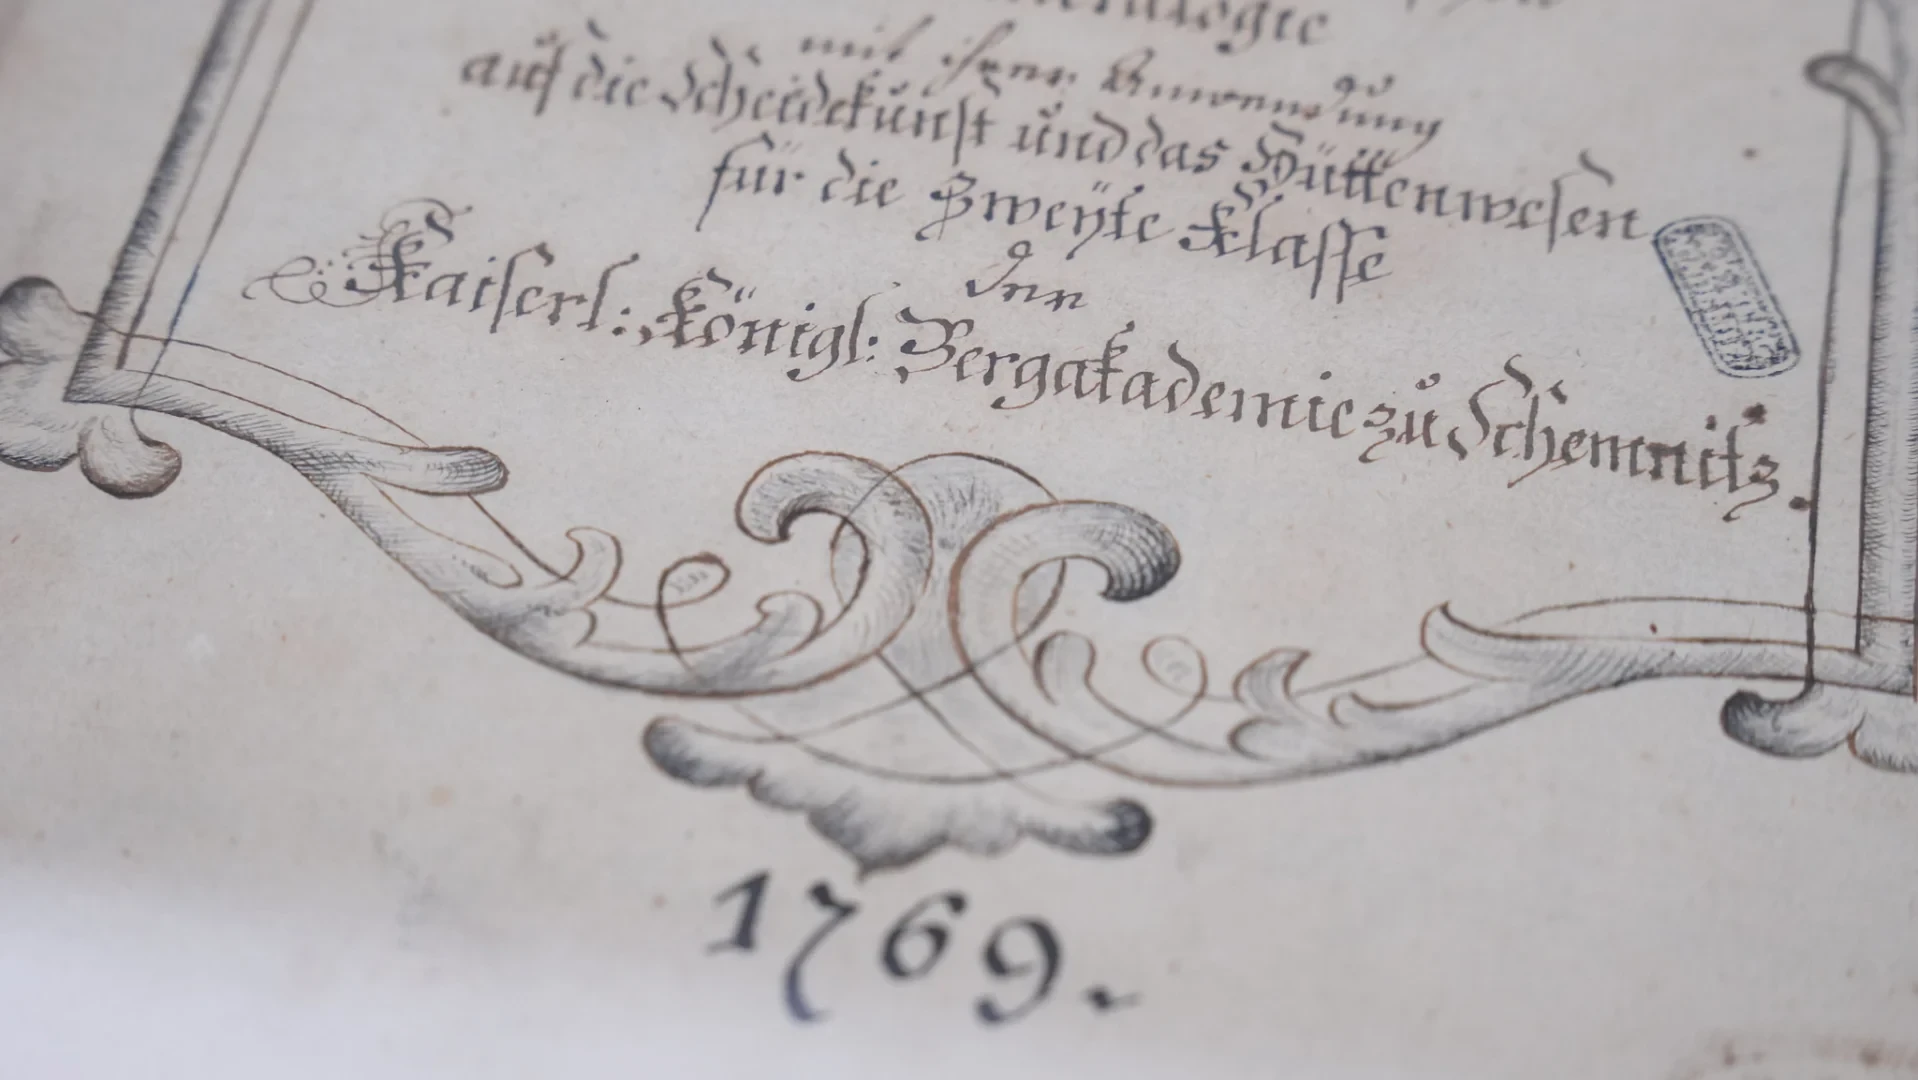 mit ihrer Anwendung
auf die Scheidekunst und das Hüttenwesen
für die Zweyte Klasse
der
Kaiserl: Königl: Bergakademie zu Schemnitz.
1769.